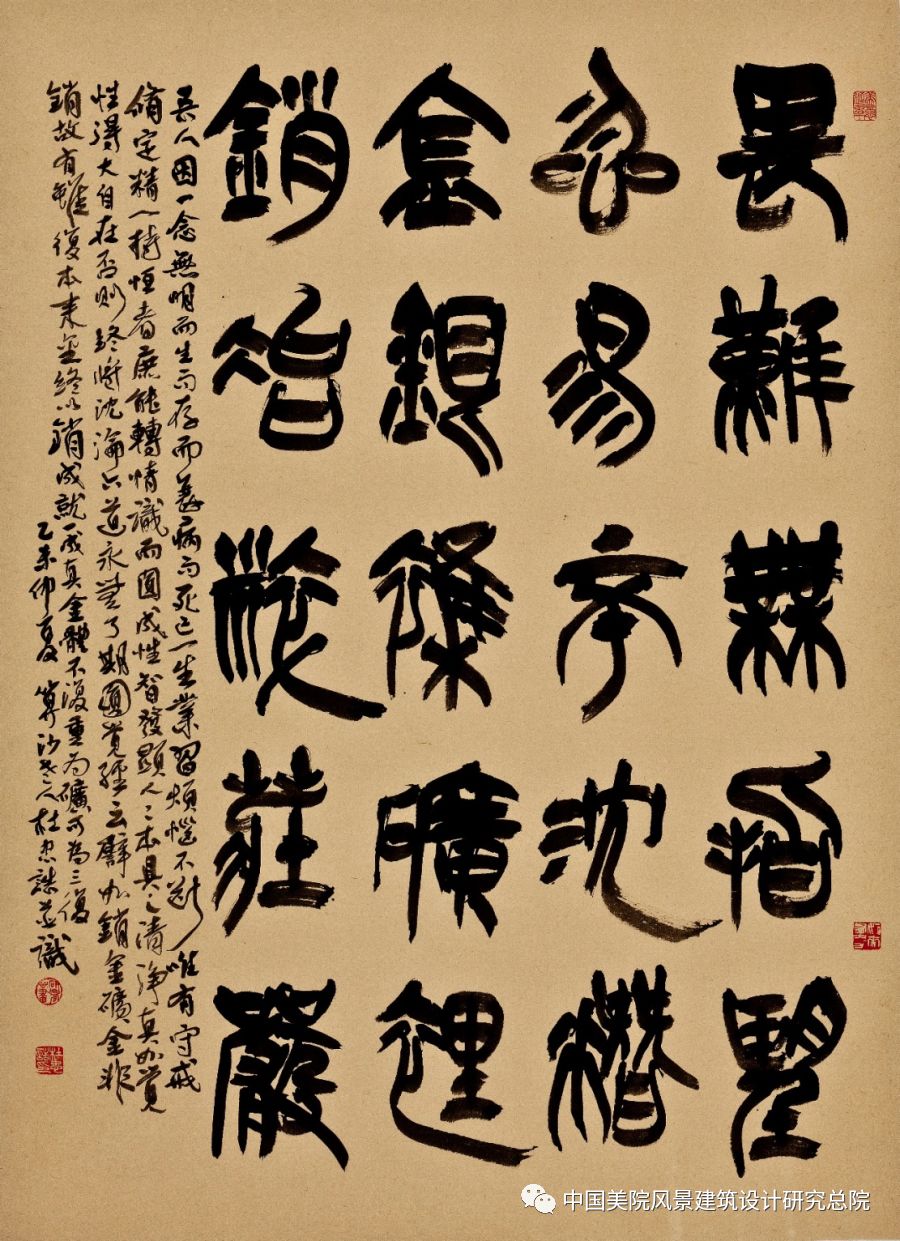 畏難無望
易卒沈潛
金銀曠裡
銷冶莊嚴
吾人因一念無明而生而存而病而死已一生業習煩惱不斷唯有守戒
脩定精一持恒者庶能轉情識而圓成性智發顯人〻本具之清淨真如覺
性得大自在否則終將沈淪六道永無了期圓覺經云譬如銷金礦金非
銷故有雖復本來金終以銷成就一成真金體不復重為礦可為三復
乙未仲夏 算沙老人杜忠誥並識
中国美院风景建筑设计研究总院